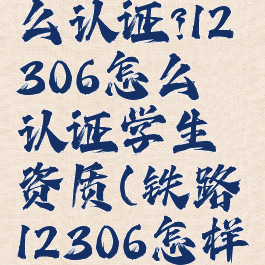 么认证?12
306怎么
认证学生
资质(铁路
12306怎样